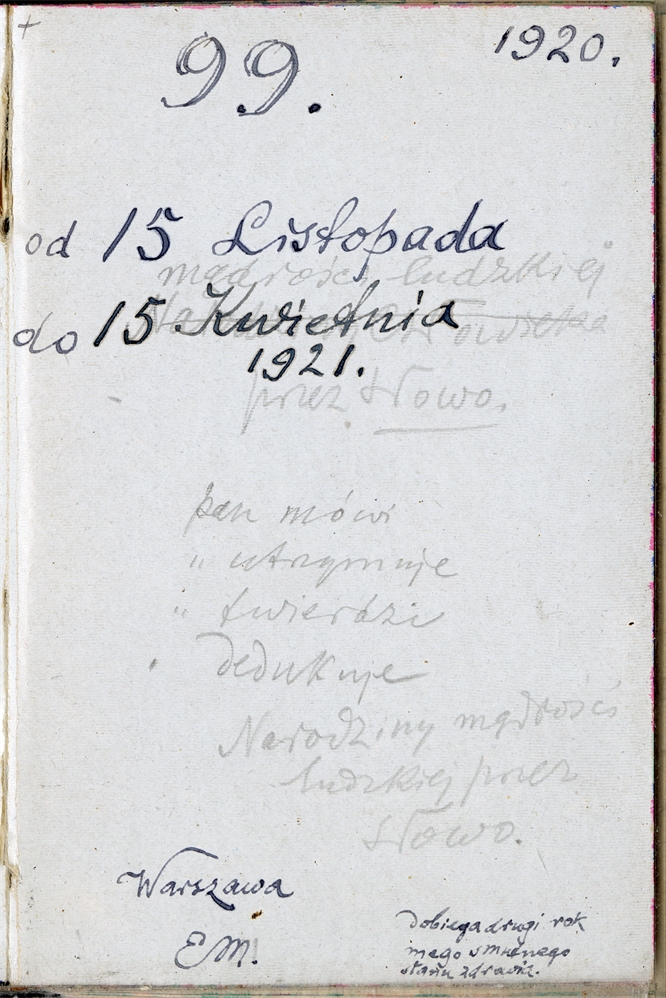 +
1920.
99.
od 15 Listopada
mądrości ludzkiej
do 15 Kwietnia
Człowieka
1921.
przez Słowo.
pan mówi
" utrzymuje
" twierdzi
" dedukuje
Narodziny mądrości
ludzkiej przez
Słowo.
Warszawa
EM.
Dobiega drugi rok
mego smutnego
stanu zdrowia.